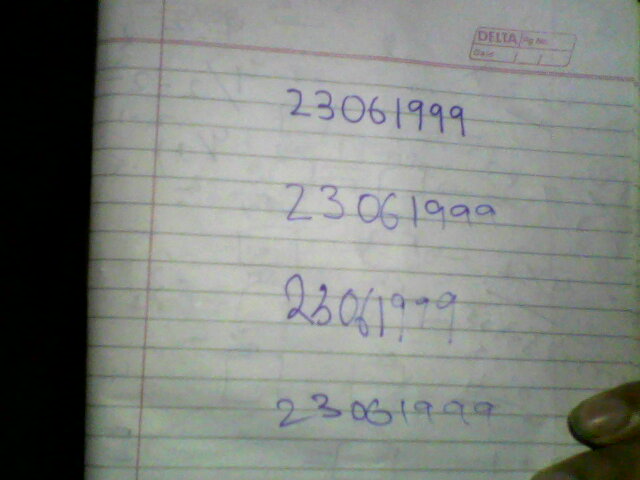 DELTA Pg No.
Date / /
23061999
23061999
23061999
23061999